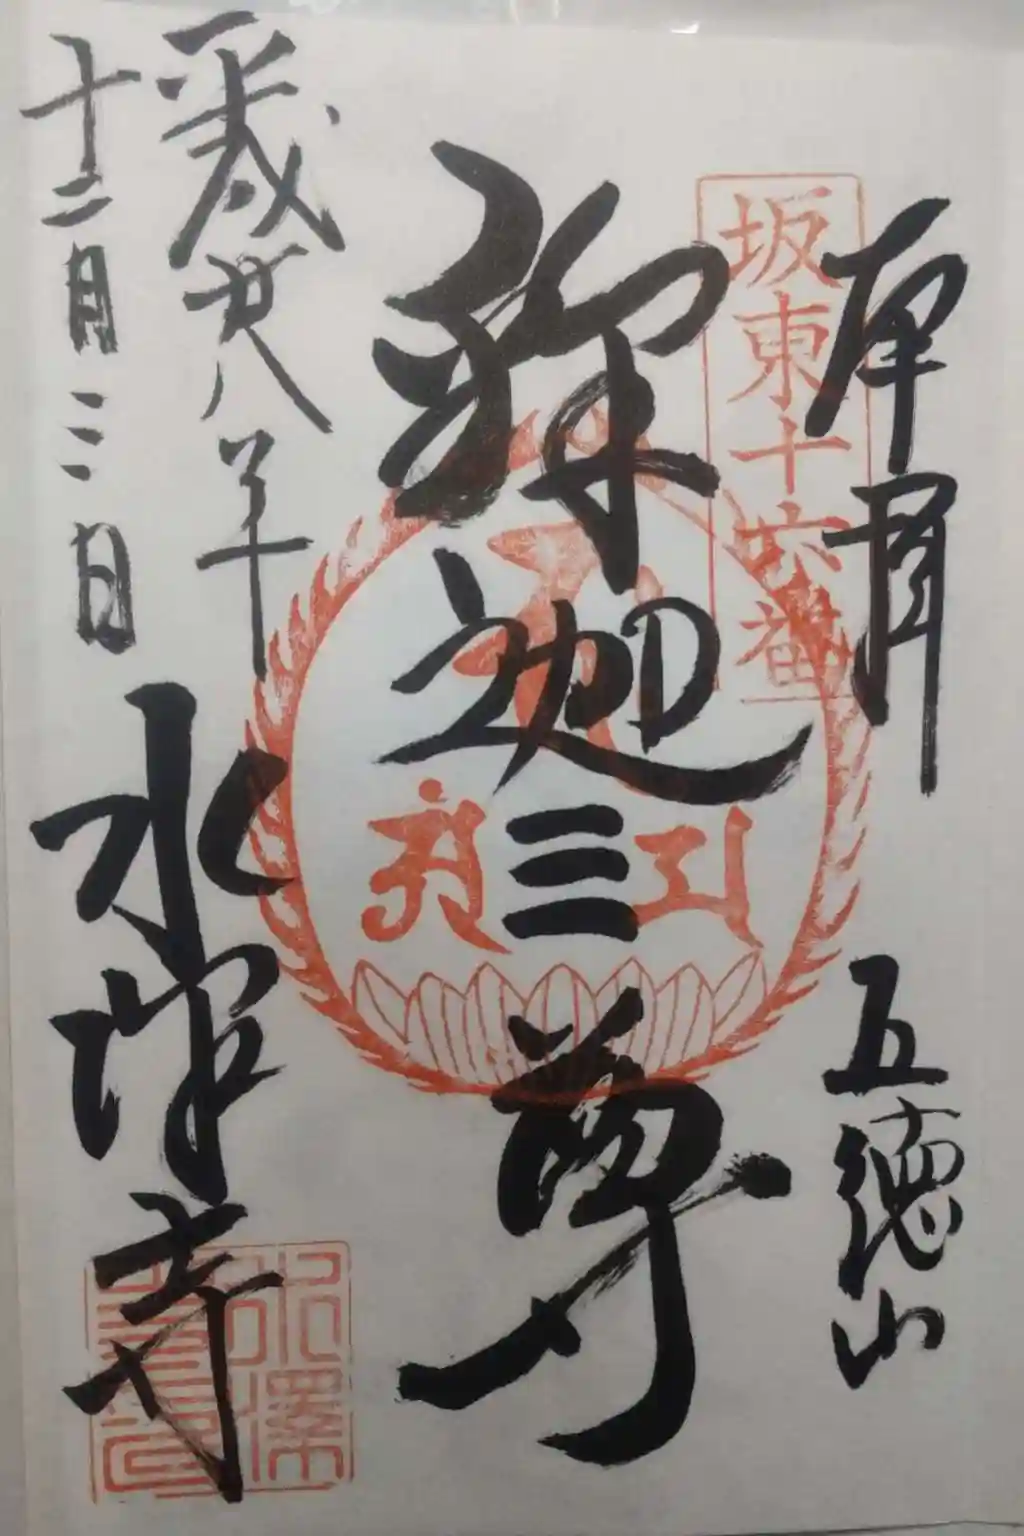 坂東十六番
五徳山
釈迦三尊
平成廿八年
十二月三日
水澤寺
水澤